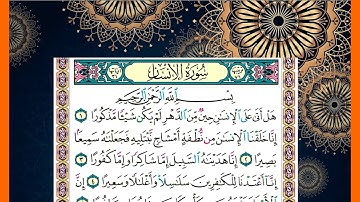 سُورَةُ الإِنسَانِ
بِسْمِ ٱللَّهِ ٱلرَّحْمَٰنِ ٱلرَّحِيمِ
هَلْ أَتَىٰ عَلَى ٱلْإِنسَٰنِ حِينٌ مِّنَ ٱلدَّهْرِ لَمْ يَكُن شَيْـًٔا مَّذْكُورًا ١
إِنَّا خَلَقْنَا ٱلْإِنسَٰنَ مِن نُّطْفَةٍ أَمْشَاجٍ نَّبْتَلِيهِ فَجَعَلْنَٰهُ سَمِيعًۢا
بَصِيرًا ٢ إِنَّا هَدَيْنَٰهُ ٱلسَّبِيلَ إِمَّا شَاكِرًا وَإِمَّا كَفُورًا ٣
إِنَّآ أَعْتَدْنَا لِلْكَٰفِرِينَ سَلَٰسِلَا۟ وَأَغْلَٰلًا وَسَعِيرًا ٤ إِنَّ